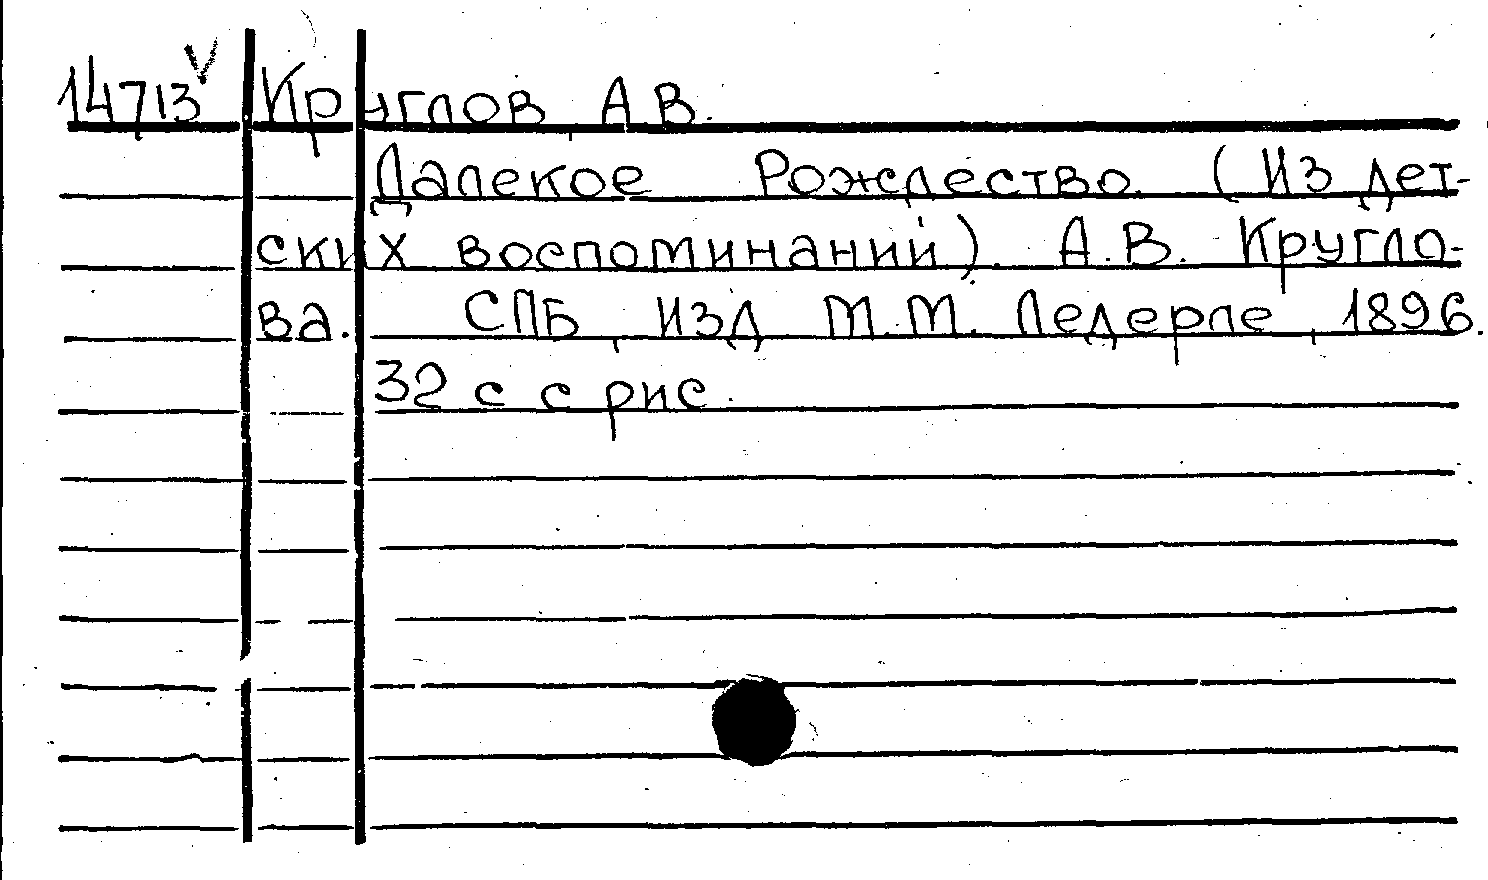 14713 V Круглов А.В.
Далекое Рождество. (Из дет-
ских воспоминаний). А.В. Кругло-
ва. СПБ, изд. М.М. Ледерле, 1896.
32 с. с рис.